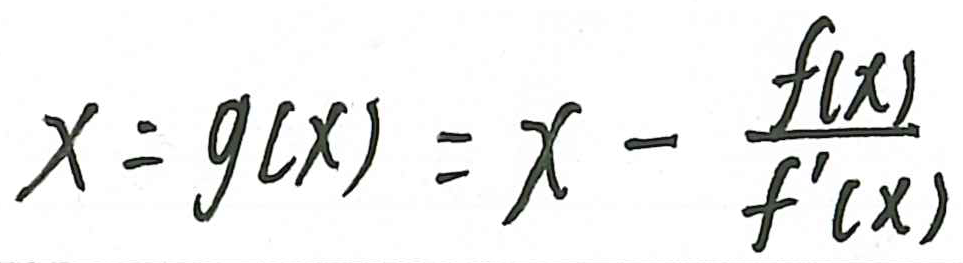 x = g(x) = x - \frac{f(x)}{f'(x)}